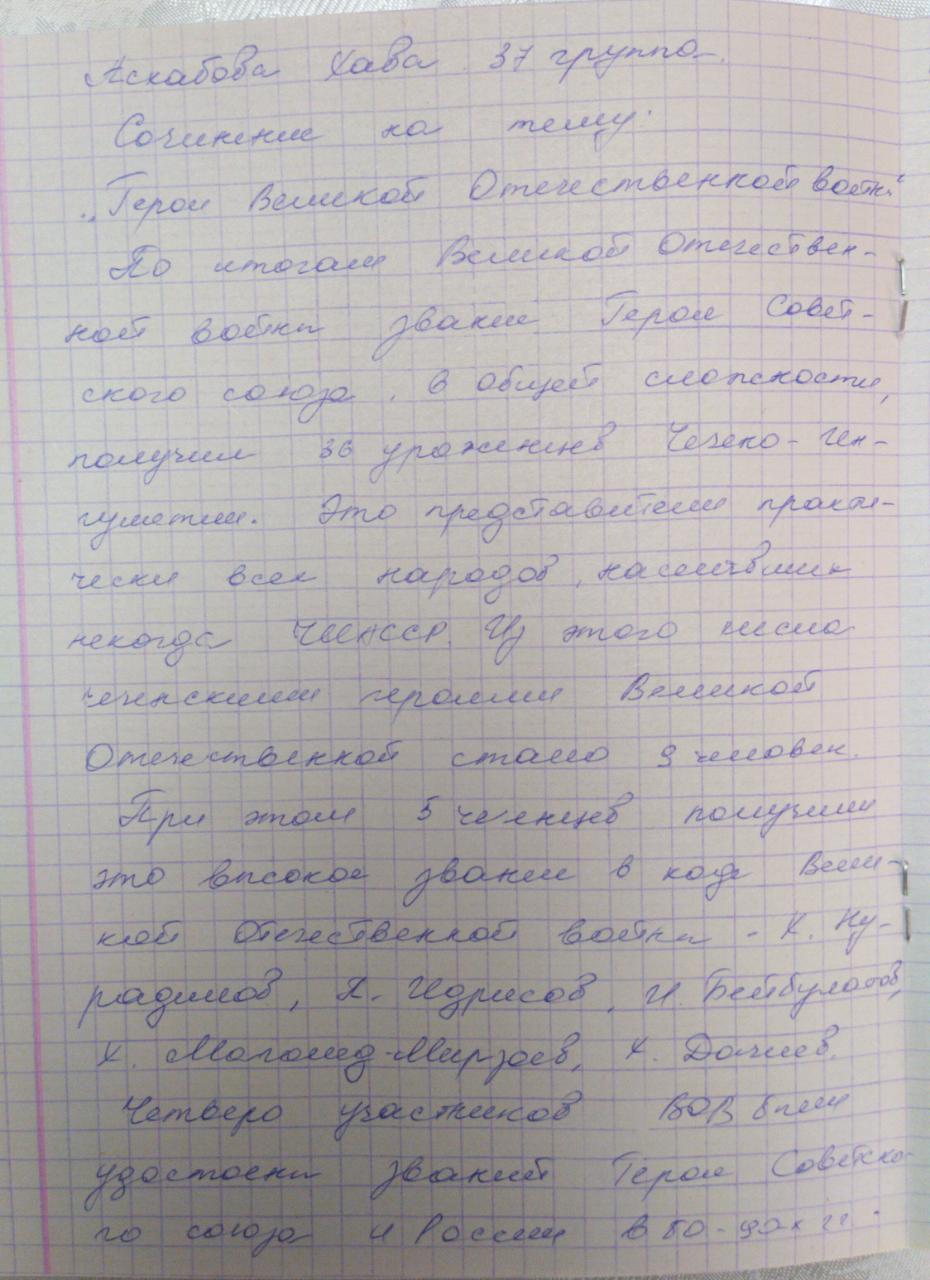 Аскабова Хава 37 группа.
Сочинение на тему:
„Герои Великой Отечественной войны“
По итогам Великой Отечествен-
ной войны звание Героя Совет-
ского союза, в общей сложности,
получили 36 уроженцев Чечено-Ин-
гушетии. Это представители практи-
чески всех народов, населявших
некогда ЧИАССР. Из этого числа
чеченскими героями Великой
Отечественной стало 9 человек.
При этом 5 чеченцев получили
это высокое звание в ходе Вели-
кой Отечественной войны - Х. Ну-
радилов, А. Идрисов, И. Бейбулатов,
Х. Магомед-Мирзоев, Х. Дачиев.
Четверо участников ВОВ были
удостоены званий Героя Советско-
го союза и России в 80-90х гг.